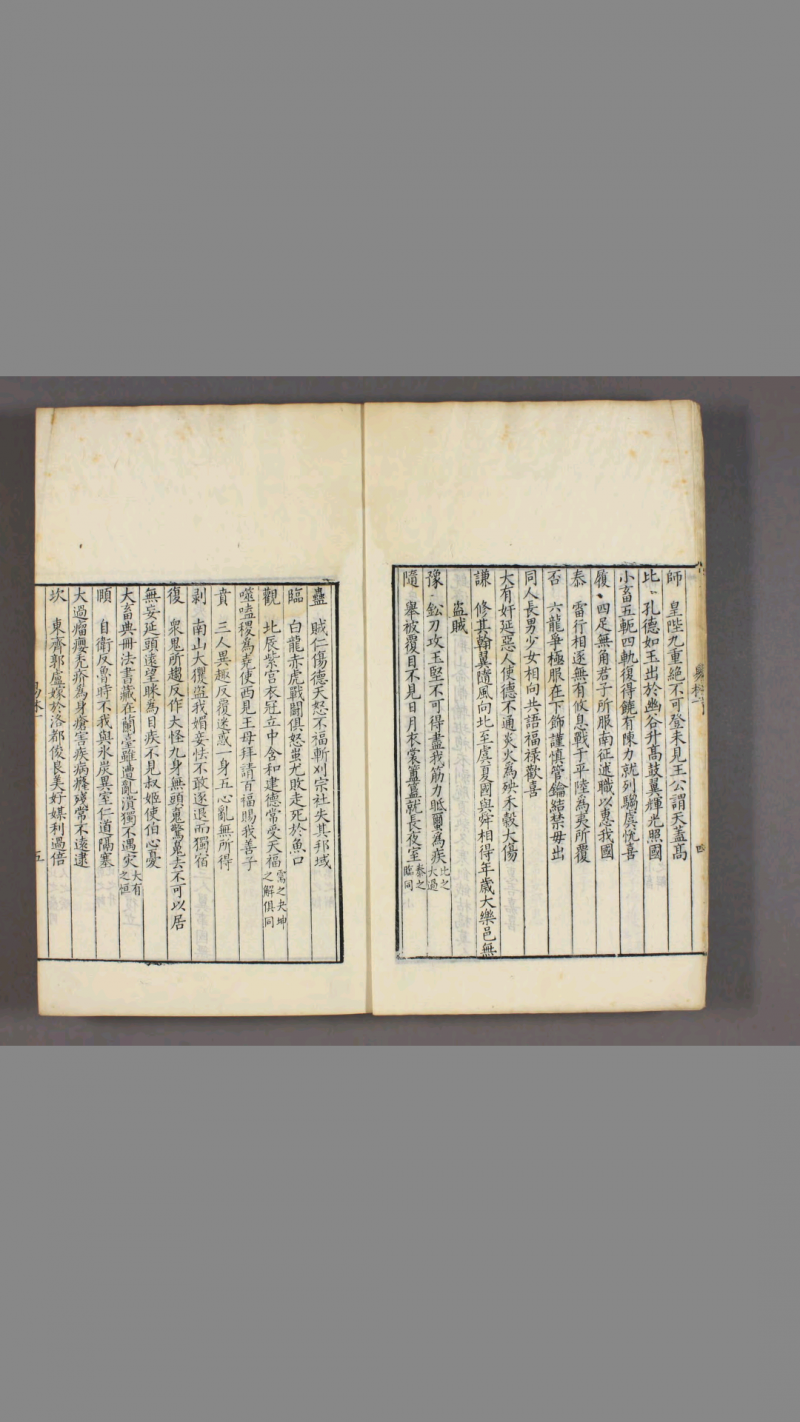 師　皇陛九重絕不可登未見王公謂天蓋高
比　孔德如玉出於幽谷升高鼓翼輝光照國
小畜五軛四軌復得饒有陳力就列騶虞悅喜
履　四足無角君子所服南征述職以惠我國
泰　雷行相逐無有攸息戰于平陸為夷所覆
否　六龍爭極服在下飾謹慎管鑰結禁毋出
同人長男少女相向共語福祿歡喜
大有奸延惡人使德不通炎火為殃禾穀大傷
謙　修其翰翼隨風向北至虞夏國與舜相得年歲大樂邑無
盜賊
豫　鈆刀攻玉堅不可得盡我筋力胝爲疾比之大過
隨　舉被覆目不見日月衣裳簠簋就長夜室泰之臨同
四
蠱　賊仁傷德天怒不福斬刈宗社失其邦域
臨　白龍赤虎戰鬭俱怒蚩尤敗走死於魚口
觀　北辰紫宮衣冠立中含和建德常受天福需之夬坤之解俱同
噬嗑稷為堯使西見王母拜請百福賜我善子
賁　三人異趣反覆迷惑一身五心亂無所得
剥　南山大玃盜我媚妾怯不敢逐退而獨宿
復　衆鬼所趨反作大怪九身無頭䰟驚鬼去不可以居
無妄延頭遠望眯為目疾不見叔姬使伯心憂
大畜典冊法書藏在蘭臺雖遭亂潰獨不遇灾大有之恒
頤　自衛反魯時不我與氷炭異室仁道隔塞
大過瘤癭禿疥為身瘡害疾病癃殘常不遠逮
坎　東齊郭盧嫁於洛都俊良美好媒利過倍
五